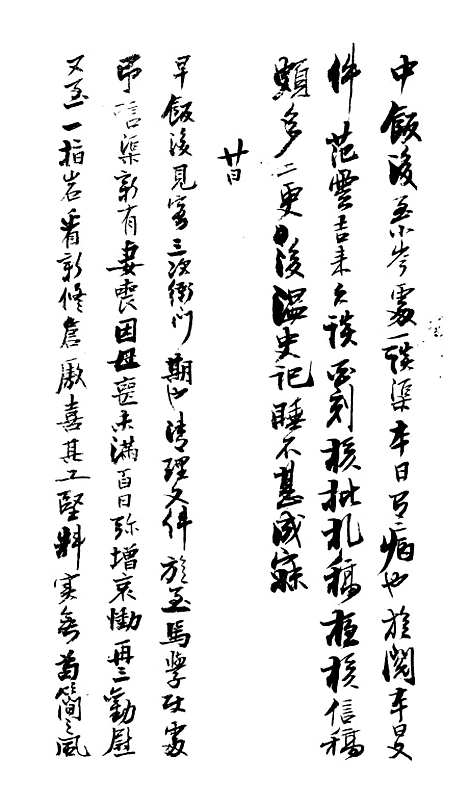 中飯後至小岑處一談渠本日有病也旋閱本日文
件范雲吉來久談酉刻核批札稿夜核信稿
頗多二更後溫史記睡不甚成寐
廿日
早飯後見客三次衙門期也清理文件旋至馬學使處
弔唁渠新有妻喪因母喪未滿百日弥增哀慟再三勸慰
又至一指岩看新修倉廒喜其工堅料實無苟簡之風